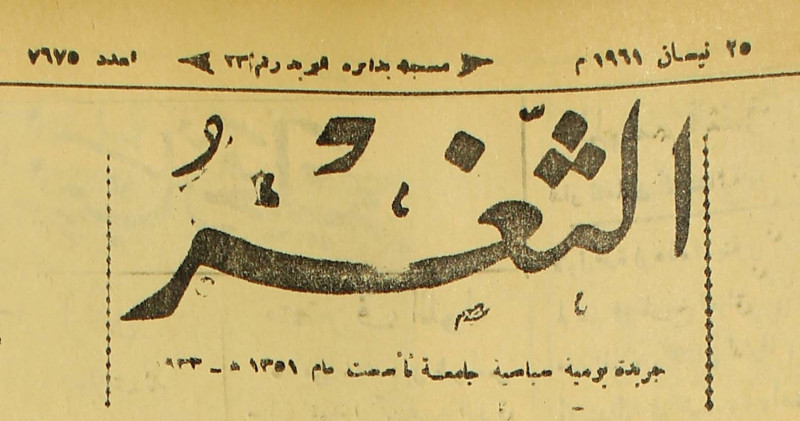 ٢٥ نيسان ١٩٦١ م مسجلة بدائرة البريد رقم ٢٣ العدد ٧٦٧٥
الثَّغْرُ
جريدة يومية سياسية جامعة تأسست عام ١٣٥١ ه ـ ٩٣٣